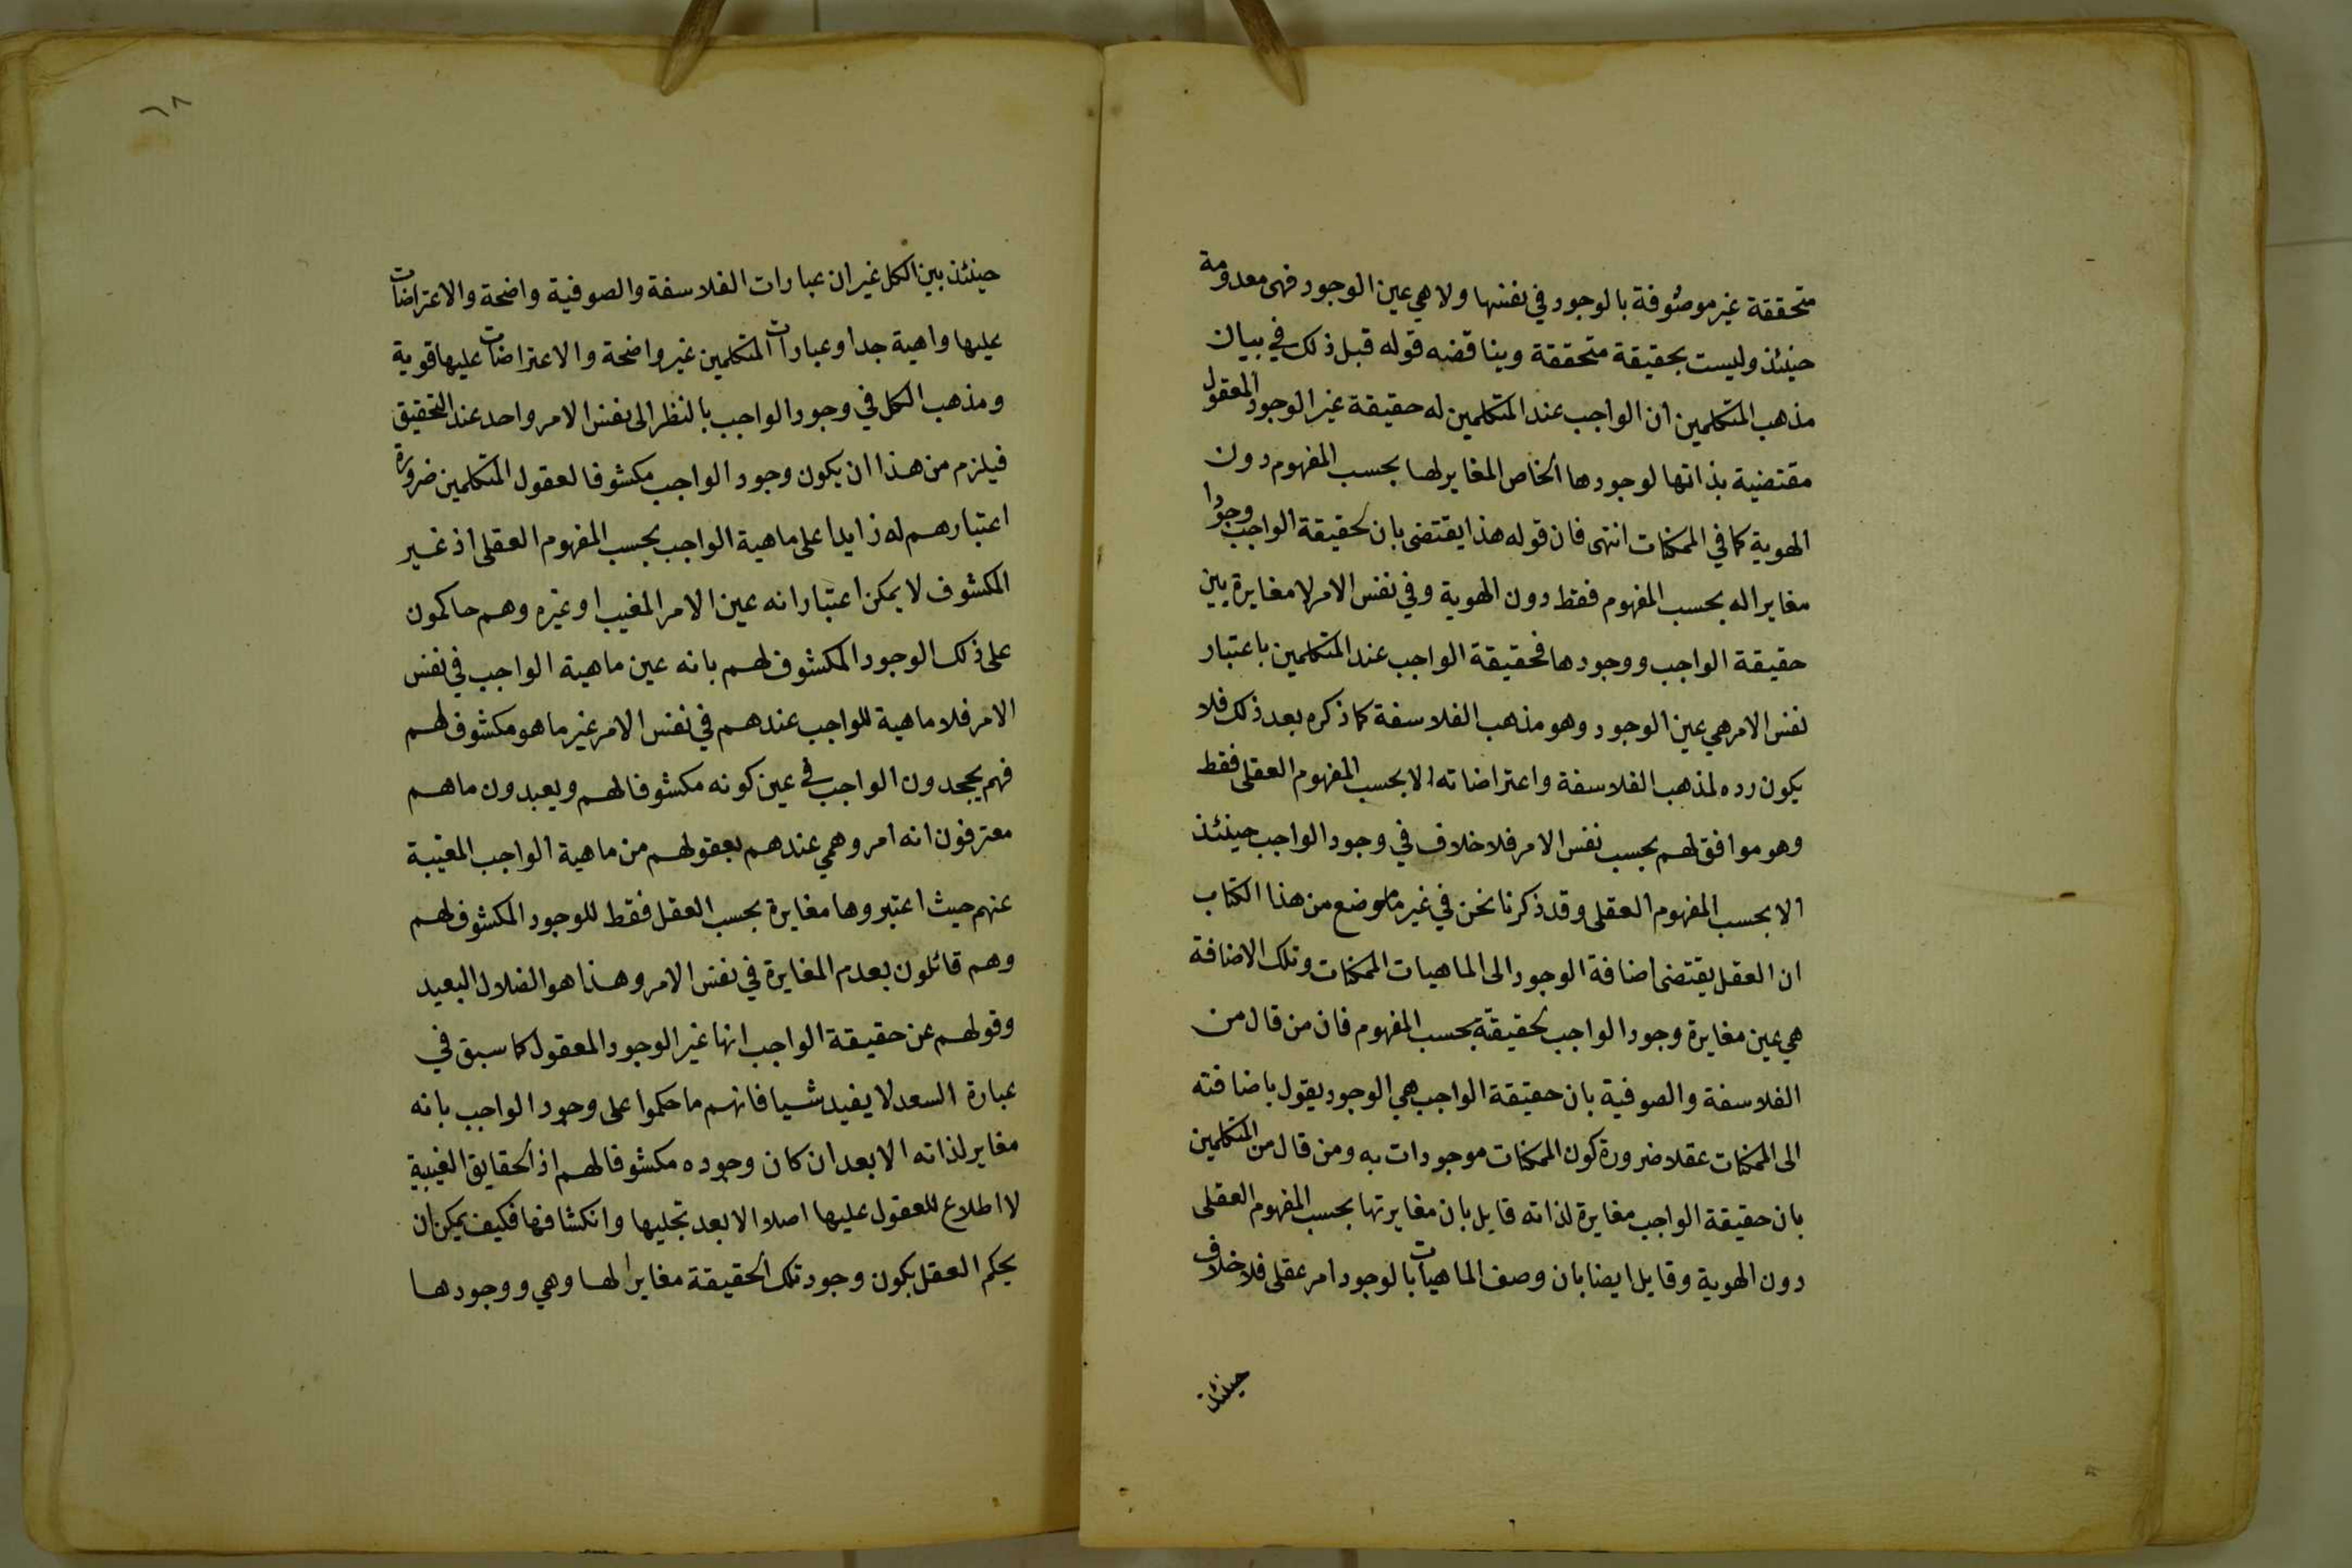 متحققة غير موصوفة بالوجود في نفسها ولا هي عين الوجود فهى معدومة
حينئذ وليست بحقيقة متحققة ويناقضه قوله قبل ذلك في بيان
مذهب المتكلمين ان الواجب عند المتكلمين له حقيقة غير الوجود المعقول
مقتضية بذاتها لوجودها الخاص المغاير لها بحسب المفهوم دون
الهوية كما في الممكنات انتهى فان قوله هذا يقتضى بان لحقيقة الواجب وجودا
مغايرا له بحسب المفهوم فقط دون الهوية وفي نفس الامر لا مغايرة بين
حقيقة الواجب ووجودها فحقيقة الواجب عند المتكلمين باعتبار
نفس الامر هي عين الوجود وهو مذهب الفلاسفة كما ذكره بعد ذلك فلا
يكون رده لمذهب الفلاسفة واعتراضاته الا بحسب المفهوم العقلى فقط
وهو موافق لهم بحسب نفس الامر فلا خلاف في وجود الواجب حينئذ
الا بحسب المفهوم العقلى وقد ذكرنا نحن في غير ما موضع من هذا الكتاب
ان العقل يقتضى اضافة الوجود الى الماهيات الممكنات وتلك الاضافة
هي عين مغايرة وجود الواجب لحقيقته بحسب المفهوم فان من قال من
الفلاسفة والصوفية بان حقيقة الواجب هي الوجود يقول باضافته
الى الممكنات عقلا ضرورة كون الممكنات موجودات به ومن قال من المتكلمين
بان حقيقة الواجب مغايرة لذاته قايل بان مغايرتها بحسب المفهوم العقلى
دون الهوية وقايل ايضا بان وصف الماهيات بالوجود امر عقلى فلا خلاف
حينئذ
٦٨
حينئذ بين الكل غير ان عبارات الفلاسفة والصوفية واضحة والاعتراضات
عليها واهية جدا وعبارات المتكلمين غير واضحة والاعتراضات عليها قوية
ومذهب الكل في وجود الواجب بالنظر الى نفس الامر واحد عند التحقيق
فيلزم من هذا ان يكون وجود الواجب مكشوفا لعقول المتكلمين ضرورة
اعتبارهم له زايدا على ماهية الواجب بحسب المفهوم العقلى اذ غير
المكشوف لا يمكن اعتبار انه عين الامر المغيب او غيره وهم حاكمون
على ذلك الوجود المكشوف لهم بانه عين ماهية الواجب في نفس
الامر فلا ماهية للواجب عندهم في نفس الامر غير ما هو مكشوف لهم
فهم يجحدون الواجب في عين كونه مكشوفا لهم ويعبدون ما هم
معترفون انه امر وهمي عندهم بعقولهم من ماهية الواجب المغيبة
عنهم حيث اعتبروها مغايرة بحسب العقل فقط للوجود المكشوف لهم
وهم قائلون بعدم المغايرة في نفس الامر وهذا هو الضلال البعيد
وقولهم عن حقيقة الواجب انها غير الوجود المعقول كما سبق في
عبارة السعد لا يفيد شيا فانهم ما حكموا على وجود الواجب بانه
مغاير لذاته الا بعد ان كان وجوده مكشوفا لهم اذ الحقايق الغيبية
لا اطلاع للعقول عليها اصلا الا بعد تجليها وانكشافها فكيف يمكن ان
يحكم العقل بكون وجود تلك الحقيقة مغايرا لها وهي ووجودها